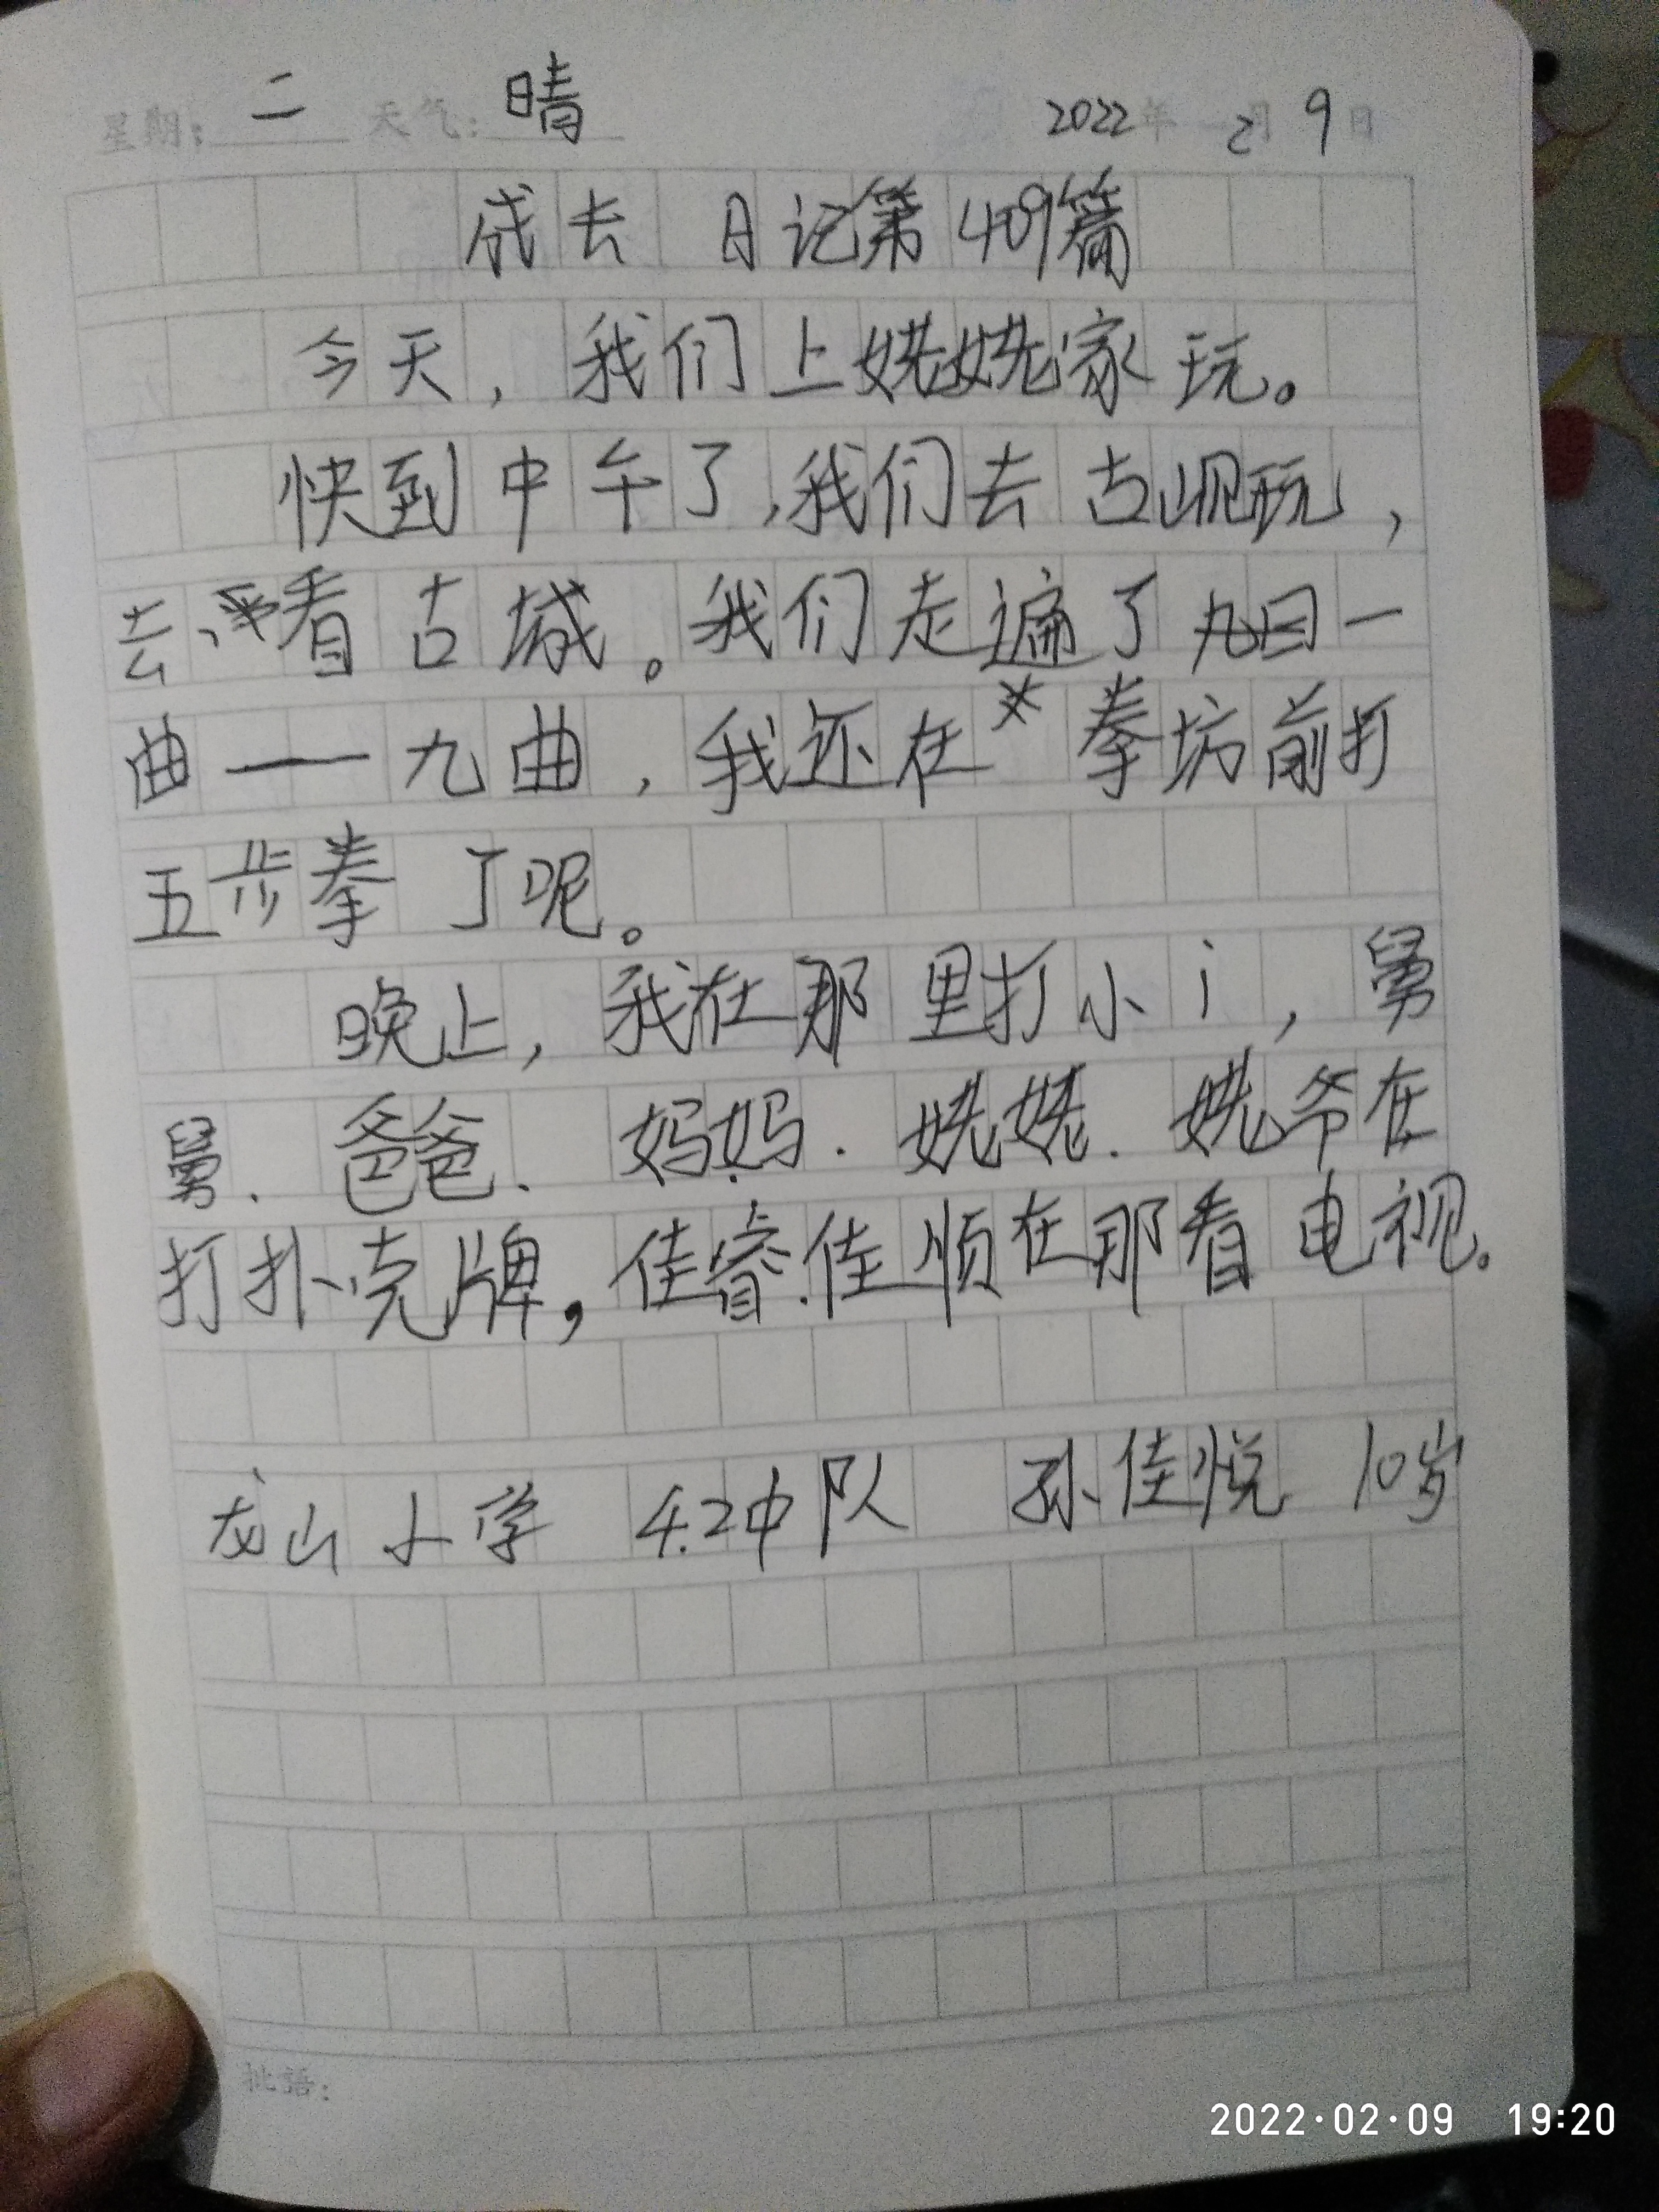 星期：二 天气：晴 2022年2月9日
成去 日记第409篇
今天，我们上姥姥家玩。
快到中午了，我们去古岘玩，
去看古城。我们走遍了九曰一
曲——九曲，我还在拳坊前打
五步拳了呢。
晚上，我在那里打小i，舅
舅、爸爸、妈妈、姥姥、姥爷在
打扑克牌，佳睿、佳顺在那看电视。
龙山小学 4.2中队 孙佳悦 10岁
批语：
2022·02·09 19:20